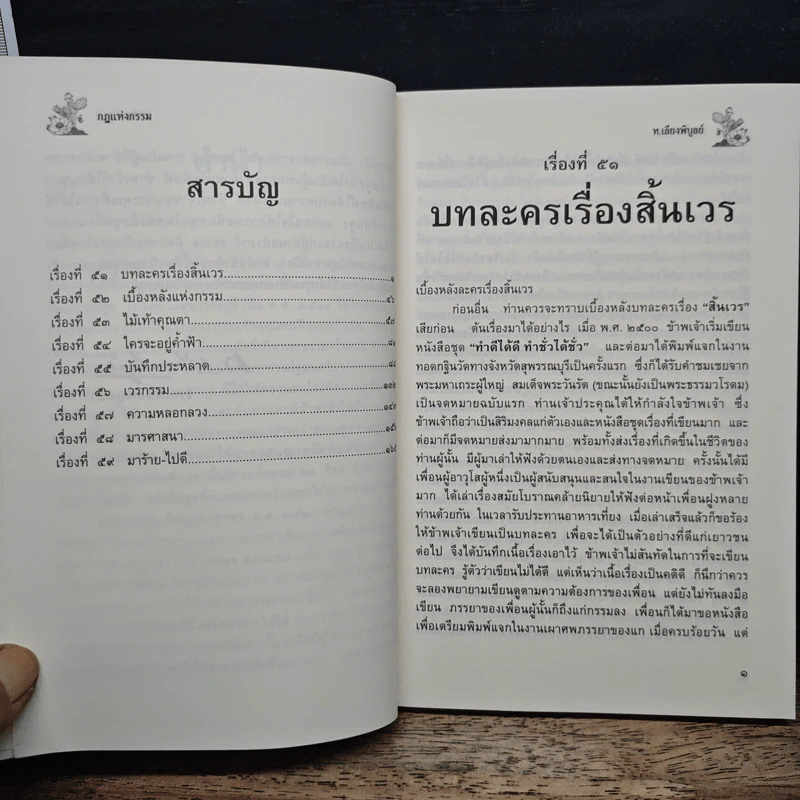 กฎแห่งกรรม
สารบัญ
เรื่องที่ ๕๑ บทละครเรื่องสิ้นเวร
เรื่องที่ ๕๒ เบื้องหลังแห่งกรรม
เรื่องที่ ๕๓ ไม้เท้าคุณตา
เรื่องที่ ๕๔ ใครจะอยู่ค้ำฟ้า
เรื่องที่ ๕๕ บันทึกประหลาด
เรื่องที่ ๕๖ เวรกรรม
เรื่องที่ ๕๗ ความหลอกลวง
เรื่องที่ ๕๘ มารศาสนา
เรื่องที่ ๕๙ มาร้าย-ไปดี
ท.เลียงพิบูลย์
เรื่องที่ ๕๑
บทละครเรื่องสิ้นเวร
เบื้องหลังละครเรื่องสิ้นเวร
ก่อนอื่น ท่านควรจะทราบเบื้องหลังบทละครเรื่อง "สิ้นเวร"
เสียก่อน ต้นเรื่องมาได้อย่างไร เมื่อ พ.ศ. ๒๕๐๐ ข้าพเจ้าเริ่มเขียน
หนังสือชุด "ทำดีได้ดี ทำชั่วได้ชั่ว" และต่อมาได้พิมพ์แจกในงาน
ทอดกฐินวัดทางจังหวัดสุพรรณบุรีเป็นครั้งแรก ซึ่งก็ได้รับคำชมเชยจาก
พระมหาเถระผู้ใหญ่ สมเด็จพระวันรัต (ขณะนั้นยังเป็นพระธรรมวโรดม)
เป็นจดหมายฉบับแรก ท่านเจ้าประคุณได้ให้กำลังใจข้าพเจ้า ซึ่ง
ข้าพเจ้าถือว่าเป็นสิริมงคลแก่ตัวเองและหนังสือชุดเรื่องที่เขียนมาก และ
ต่อมาก็มีจดหมายส่งมามากมาย พร้อมทั้งส่งเรื่องที่เกิดขึ้นในชีวิตของ
ท่านผู้นั้น มีผู้มาเล่าให้ฟังด้วยตนเองและส่งทางจดหมาย ครั้งนั้นได้มี
เพื่อนผู้อาวุโสผู้หนึ่งเป็นผู้สนับสนุนและสนใจในงานเขียนของข้าพเจ้า
มาก ได้เล่าเรื่องสมัยโบราณคล้ายนิยายให้ฟังต่อหน้าเพื่อนฝูงหลาย
ท่านด้วยกัน ในเวลารับประทานอาหารเที่ยง เมื่อเล่าเสร็จแล้วก็ขอร้อง
ให้ข้าพเจ้าเขียนเป็นบทละคร เพื่อจะได้เป็นตัวอย่างที่ดีแก่เยาวชน
ต่อไป จึงได้บันทึกเนื้อเรื่องเอาไว้ ข้าพเจ้าไม่สันทัดในการที่จะเขียน
บทละคร รู้ตัวว่าเขียนไม่ได้ดี แต่เห็นว่าเนื้อเรื่องเป็นคติดี ก็นึกว่าควร
จะลองพยายามเขียนดูตามความต้องการของเพื่อน แต่ยังไม่ทันลงมือ
เขียน ภรรยาของเพื่อนผู้นั้นก็ถึงแก่กรรมลง เพื่อนก็ได้มาขอหนังสือ
เพื่อเตรียมพิมพ์แจกในงานเผาศพภรรยาของแก เมื่อครบร้อยวัน แต่
๑